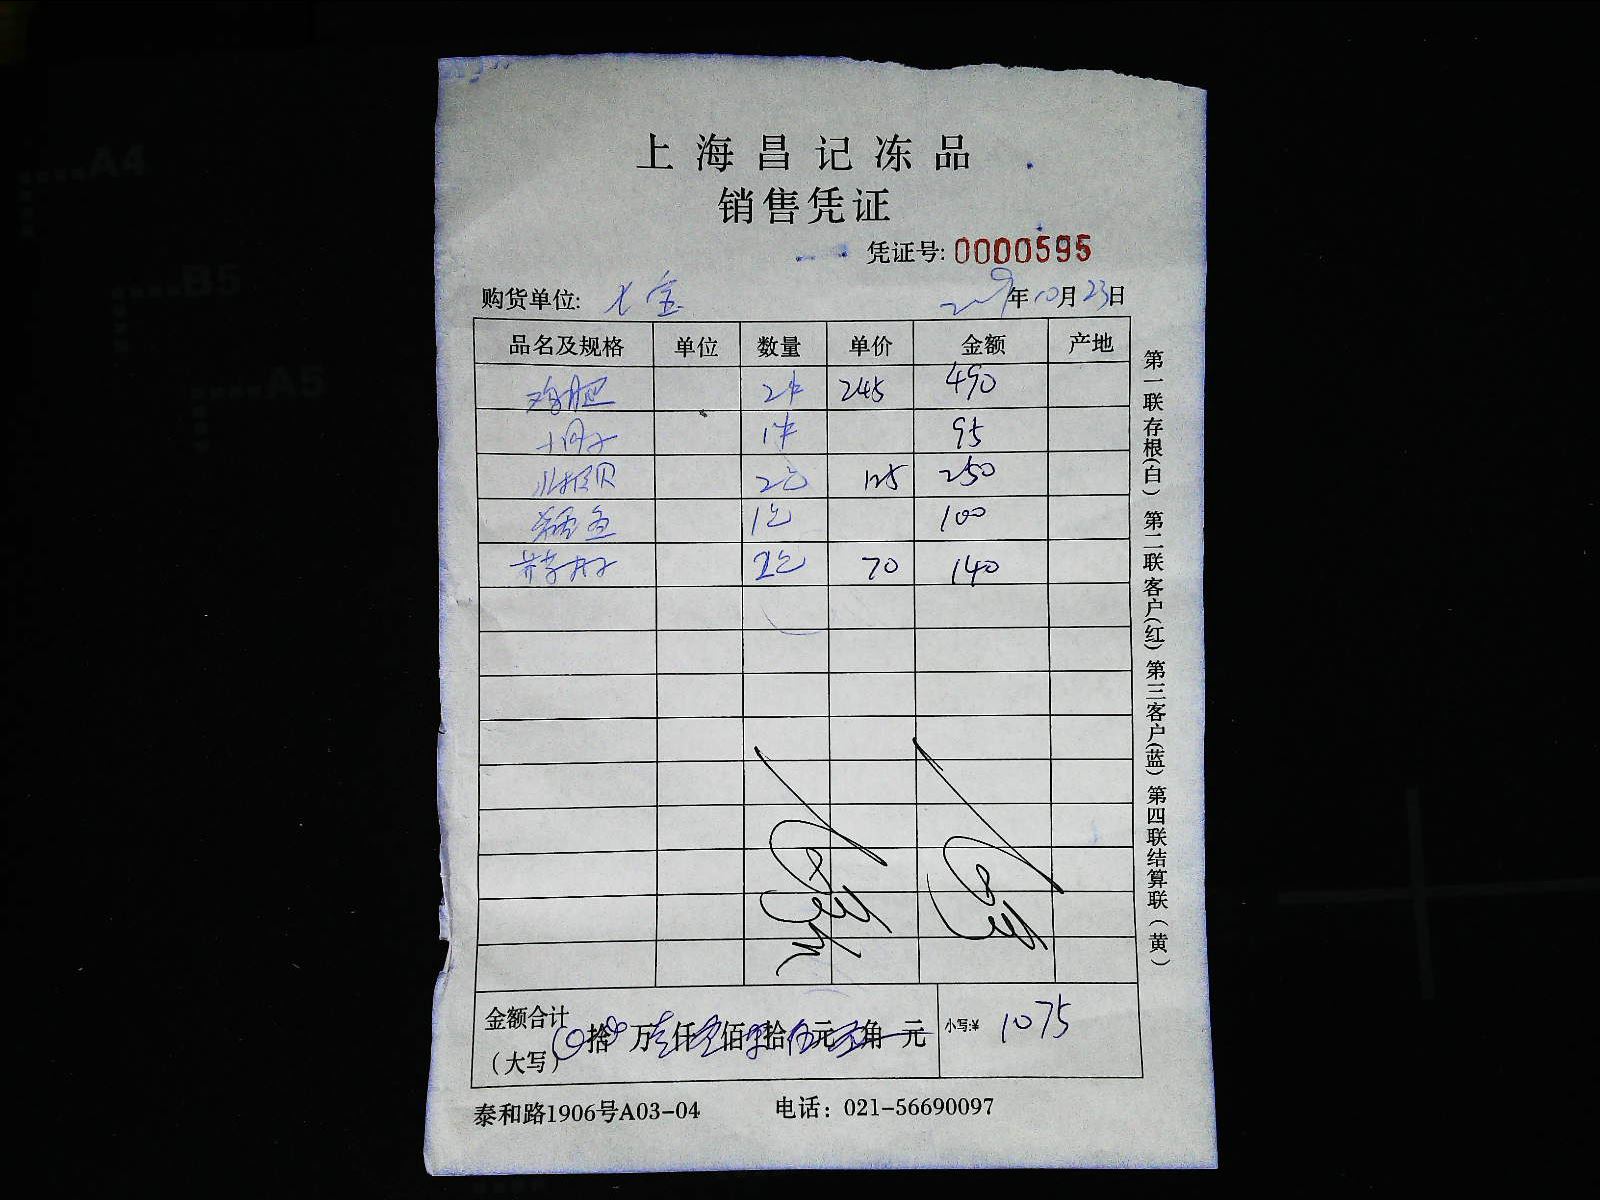 上海昌记冻品
销售凭证
凭证号: 0000595
购货单位: 七宝 2019年10月23日
品名及规格 单位 数量 单价 金额 产地
2件 245 490
1件 95
2包 125 250
1包 100
2包 70 140
金额合计(大写) 拾 万 仟 佰 拾 元 角 元 小写:¥ 1075
泰和路1906号A03-04 电话: 021-56690097
第一联存根(白) 第二联客户(红) 第三客户(蓝) 第四联结算联(黄)